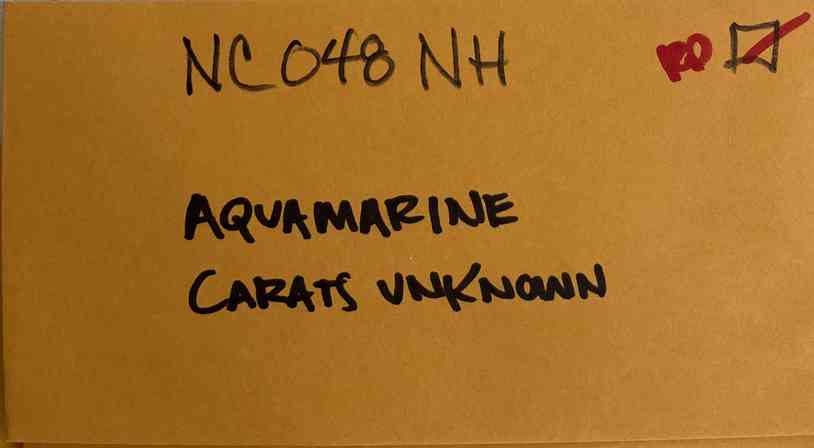 NC048 NH
AQUAMARINE
CARATS UNKNOWN